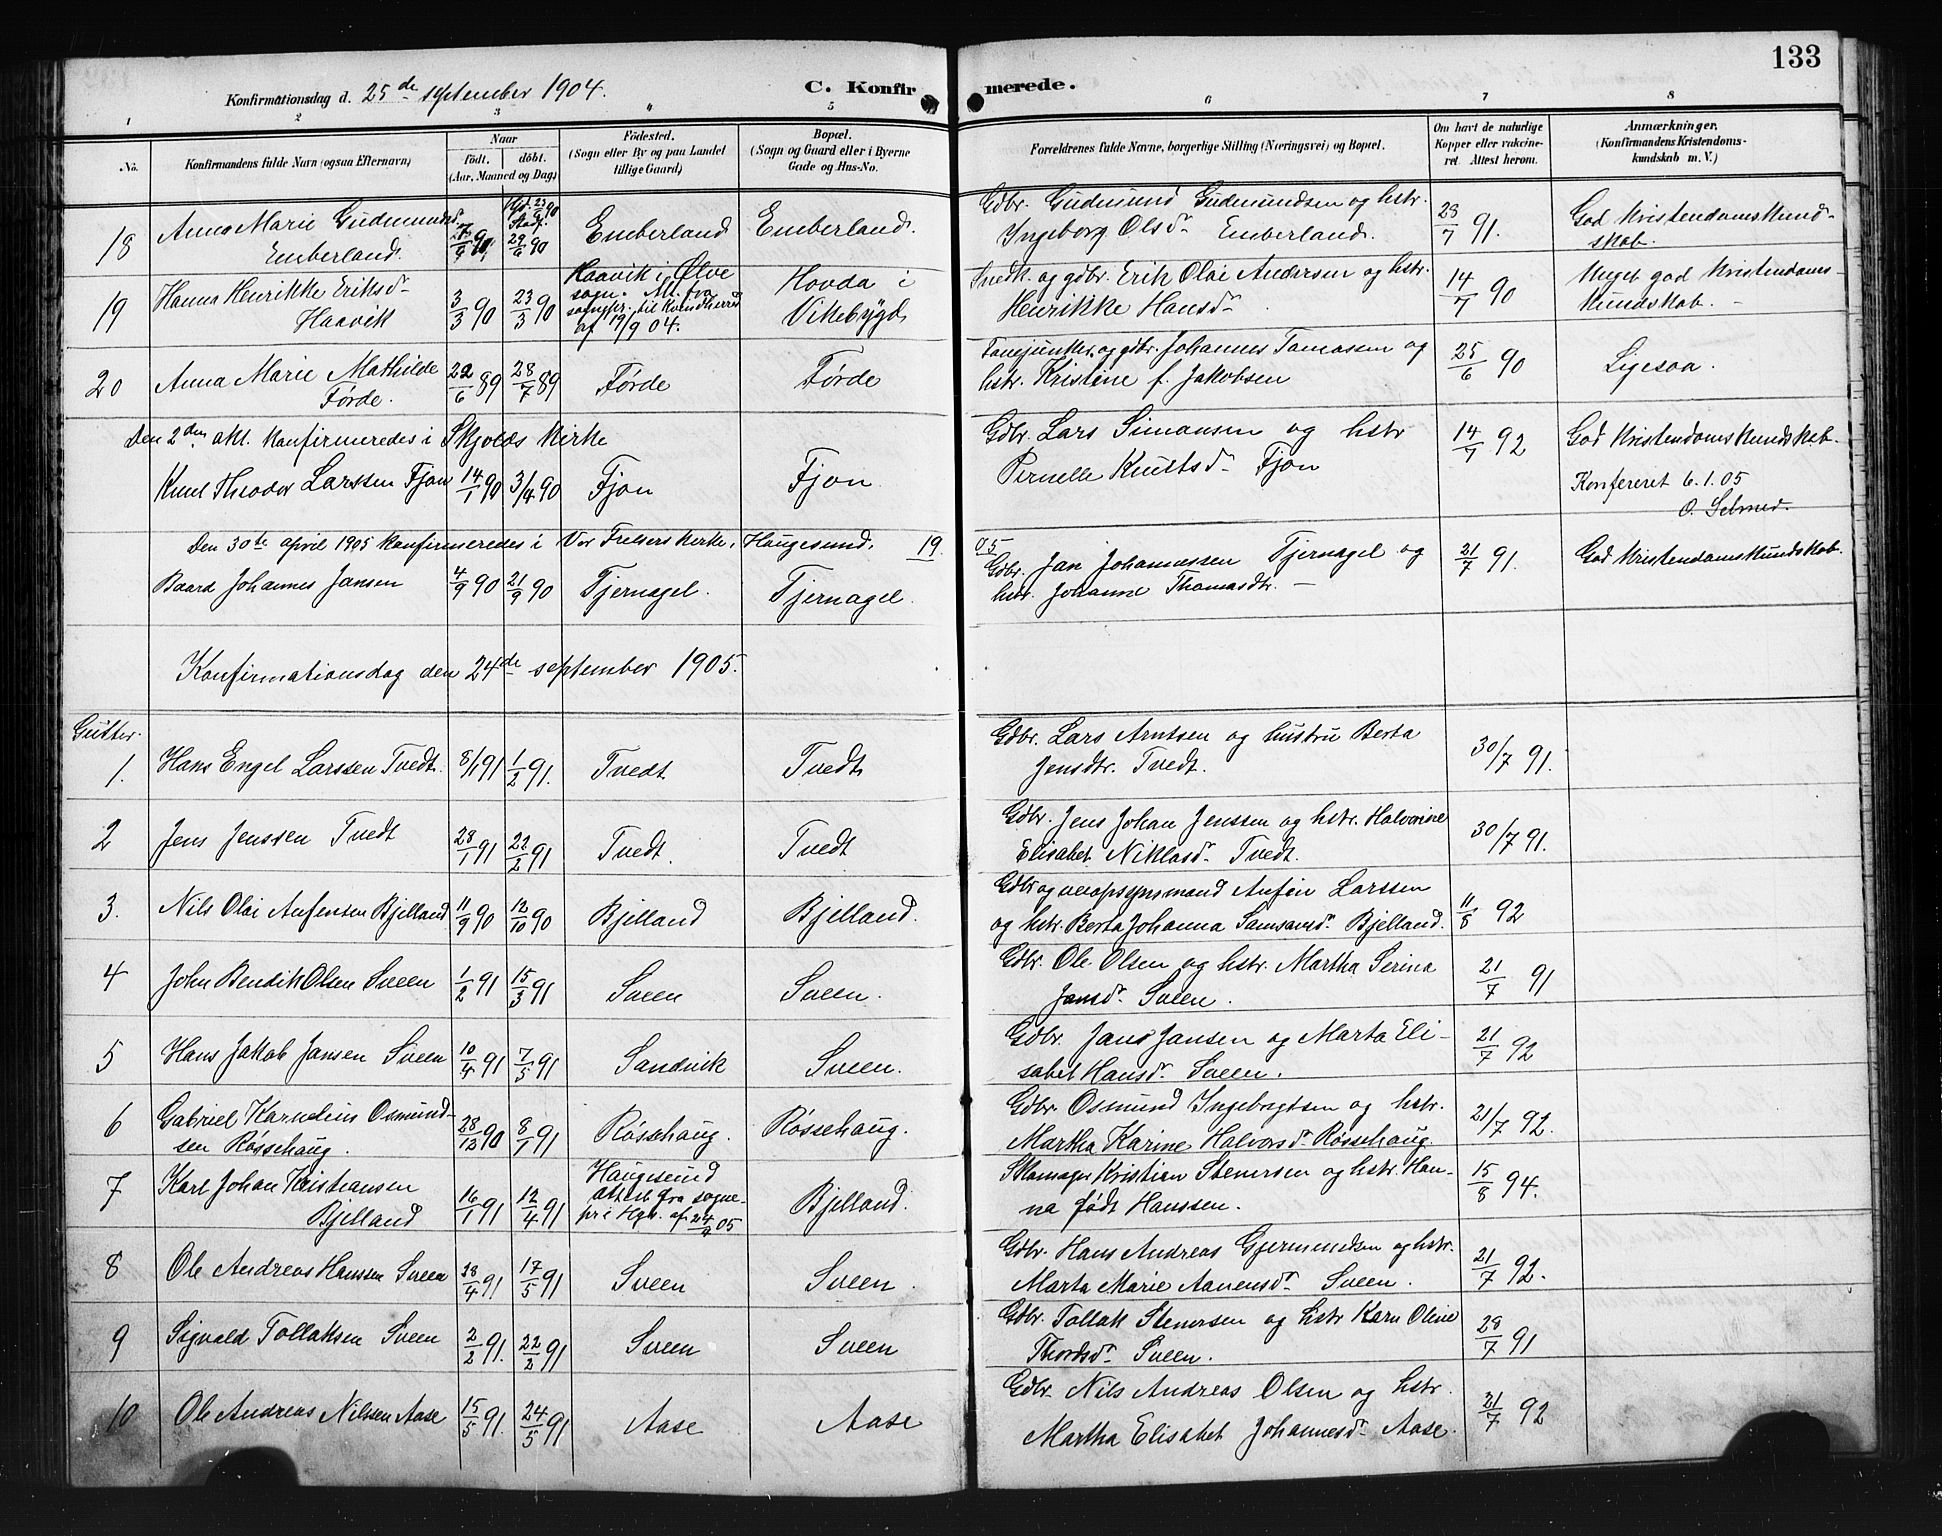 133
Konfirmationsdag d. 25de september 1904.
C. Konfirmerede.
1 2 3 4 5 6 7 8
No.
Konfirmandens fulde Navn (ogsaa Efternavn)
Naar
født. døbt.
(Aar, Maaned og Dag)
Fødested.
(Sogn eller By og paa Landet
tillige Gaard)
Bopæl.
(Sogn og Gaard eller i Byerne
Gade og Hus-No.
Forældrenes fulde Navne, borgerlige Stilling (Næringsvei) og Bopæl.
Om havt de naturlige
Kopper eller vakcine-
ret Attest herom.
Anmærkninger.
(Konfirmandens Kristendoms-
kundskab m. V.)
18 Anna Marie Gudmundsd. 29/6 90 Emberland Emberland. Gdbr. Gudmund Gudmundsen og hstr. 23/7 91. God Kristendomskund-
Emberland. Ingeborg Olsdr Emberland. skab.
19 Hanna Henrikke Eriksdr 3/3 90 23/3 90 Haavik i Ølve Hovda i Snedk. og gdbr. Erik Olai Andersen og hstr. 14/7 90 Meget god Kristendoms-
Haavik sogn. At. fra Vikebygd Henrikke Hansdr kundskab.
sognepr. til Kvindherred
af 19/9 04.
20 Anna Marie Mathilde 22/6 89 28/7 89 Førde Førde gdbr. Johannes Tomassen og 25/6 90 Ligesaa.
Førde. hstr. Kristine f. Jakobsen
Den 2den okt. konfirmeredes i Skjolds kirke
Knut Theodor Larssen Fjon 14/1 90 3/4 90 Fjon Fjon. Gdbr. Lars Simonsen og hstr 14/7 92 God Kristendomskundskab.
Pernelle Knutsdr Fjon Konfereret 6.1.05
Den 30te april 1905 konfirmeredes i Vor Frelsers kirke, Haugesund, 19. 05
Baard Johannes Jansen 4/9 90 21/9 90 Tjernagel. Tjernagel. Gdbr. Jan Johannessen Tjernagel og 21/7 91. God Kristendomskundskab.
hstr. Johanne Thomasdtr.
Konfirmationsdag den 24de september 1905.
Gutter.
1. Hans Engel Larssen Tvedt. 8/1 91 1/2 91. Tvedt Tvedt Gdbr. Lars Arntsen og hustru Berta 30/7 91.
Jensdtr. Tvedt.
2 Jens Jenssen Tvedt 28/1 91 22/2 91 Tvedt. Tvedt Gdbr. Jens Johan Jenssen og hstr. Halvorine 30/7 91.
Elisabet Niklasdr Tvedt.
3. Nils Olai Anfinsen Bjelland 11/9 90 12/10 90 Bjelland Bjelland. Gdbr og veiopsynsmand Anfin Larssen 11/8 92
og hstr. Berta Johanna Samsonsdr Bjelland.
4 John Bendik Olsen Sveen 1/2 91 15/3 91 Sveen Sveen. Gdbr. Ole Olsen og hstr. Martha Serina 21/7 91
Jansdr Sveen.
5 Hans Jakob Jansen Sveen 10/4 91 7/5 91 Sandvik Sveen. Gdbr. Jans Jansen og Marta Eli- 21/7 92
sabet Hansdr Sveen.
6 Gabriel Kornelius Osmund- 28/12 90 8/1 91 Røssehaug. Røssehaug. Gdbr. Osmund Ingebrgtsen og hstr. 21/7 92.
sen Røssehaug. Martha Karine Halvorsdr Røssehaug.
7 Karl Johan Kristiansen 16/1 91 12/4 91 Haugesund Bjelland. Skomagr Kristian Stenersen og hstr. Han- 15/8 94.
Bjelland attest fra sogne- na født Hanssen.
pr i Hgs. af 24/9 05
8 Ole Andreas Hanssen Sveen 18/4 91 17/5 91 Sveen Sveen. Gdbr. Hans Andreas Gjermundsen og hstr. 21/7 92.
Marta Marie Aanensdr Sveen.
9 Sigvald Tollaksen Sveen 2/2 91. 22/2 91 Sveen Sveen Gdbr. Tollak Stenersen og hstr Karn Oline 28/7 91
Thordsdr Sveen.
10 Ole Andreas Nilssen Aase 15/5 91. 24/5 91 Aase Aase Gdbr. Nils Andreas Olsen og hstr. 21/7 92
Martha Elisabet Johannesdr Aase.